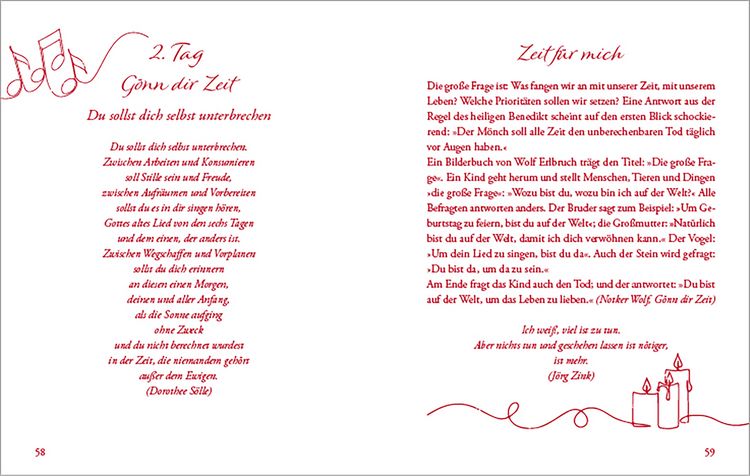 2. Tag
Gönn dir Zeit
Du sollst dich selbst unterbrechen
Du sollst dich selbst unterbrechen.
Zwischen Arbeiten und Konsumieren
soll Stille sein und Freude,
zwischen Aufräumen und Vorbereiten
sollst du es in dir singen hören,
Gottes altes Lied von den sechs Tagen
und dem einen, der anders ist.
Zwischen Wegschaffen und Vorplanen
sollst du dich erinnern
an diesen einen Morgen,
deinen und aller Anfang,
als die Sonne aufging
ohne Zweck
und du nicht berechnet wurdest
in der Zeit, die niemandem gehört
außer dem Ewigen.
(Dorothee Sölle)
58
Zeit für mich
Die große Frage ist: Was fangen wir an mit unserer Zeit, mit unserem
Leben? Welche Prioritäten sollen wir setzen? Eine Antwort aus der
Regel des heiligen Benedikt scheint auf den ersten Blick schockie-
rend: »Der Mönch soll alle Zeit den unberechenbaren Tod täglich
vor Augen haben.«
Ein Bilderbuch von Wolf Erlbruch trägt den Titel: »Die große Fra-
ge«. Ein Kind geht herum und stellt Menschen, Tieren und Dingen
»die große Frage«: »Wozu bist du, wozu bin ich auf der Welt?« Alle
Befragten antworten anders. Der Bruder sagt zum Beispiel: »Um Ge-
burtstag zu feiern, bist du auf der Welt«; die Großmutter: »Natürlich
bist du auf der Welt, damit ich dich verwöhnen kann.« Der Vogel:
»Um dein Lied zu singen, bist du da«. Auch der Stein wird gefragt:
»Du bist da, um da zu sein.«
Am Ende fragt das Kind auch den Tod; und der antwortet: »Du bist
auf der Welt, um das Leben zu lieben.« (Notker Wolf, Gönn dir Zeit)
Ich weiß, viel ist zu tun.
Aber nichts tun und geschehen lassen ist nötiger,
ist mehr.
(Jörg Zink)
59